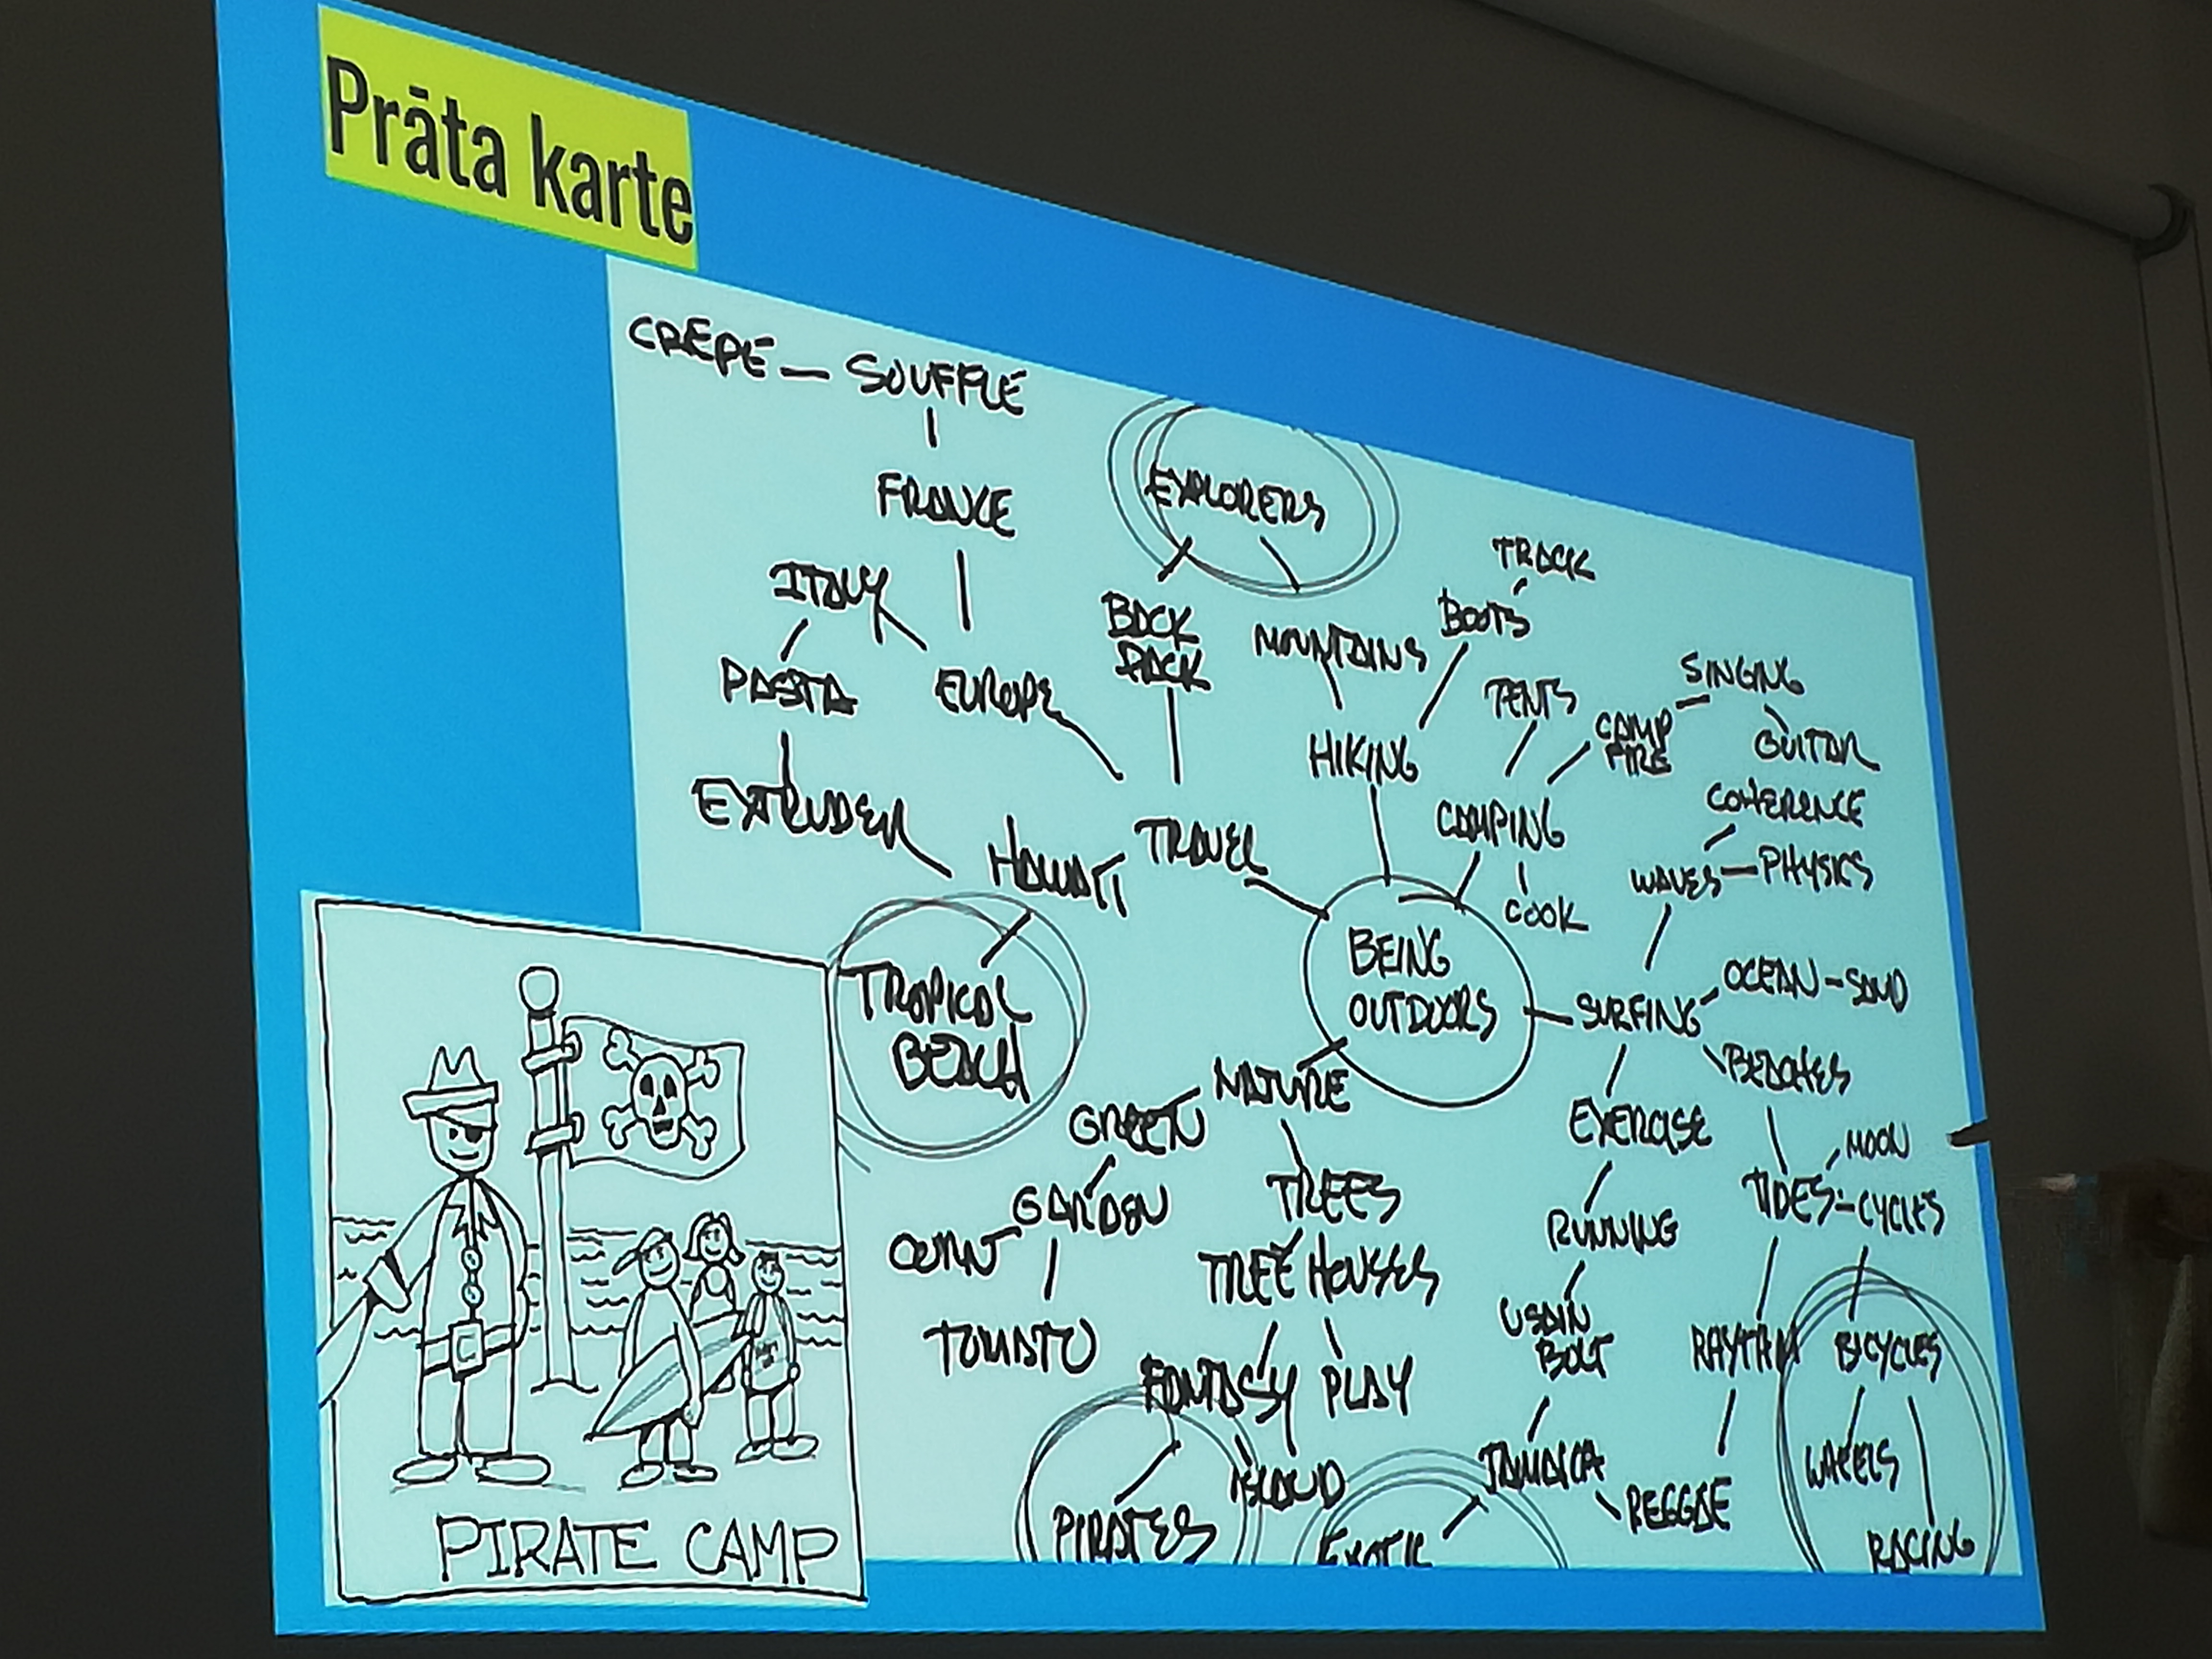 Prāta karte
CREPE - SOUFFLE
FRANCE
EXPLORERS
ITALY
TRACK
BACK
PACK
MOUNTAINS
BOOTS
PASTA
EUROPE
TENTS
SINGING
CAMP
FIRE
GUITAR
HIKING
EXTRUDER
HAWAII
TRAVEL
CAMPING
COHERENCE
WAVES - PHYSICS
COOK
BEING
OUTDOORS
TROPICAL
BEACH
SURFING
OCEAN - SAND
BEACHES
NATURE
GREEN
EXERCISE
MOON
GARDEN
TREES
TIDES - CYCLES
CORN
TREE HOUSES
RUNNING
TOMATO
USAIN
BOLT
RHYTHM
BICYCLES
FANTASY
PLAY
JAMAICA
WHEELS
ISLAND
REGGAE
PIRATES
EXOTIC
RACING
PIRATE CAMP